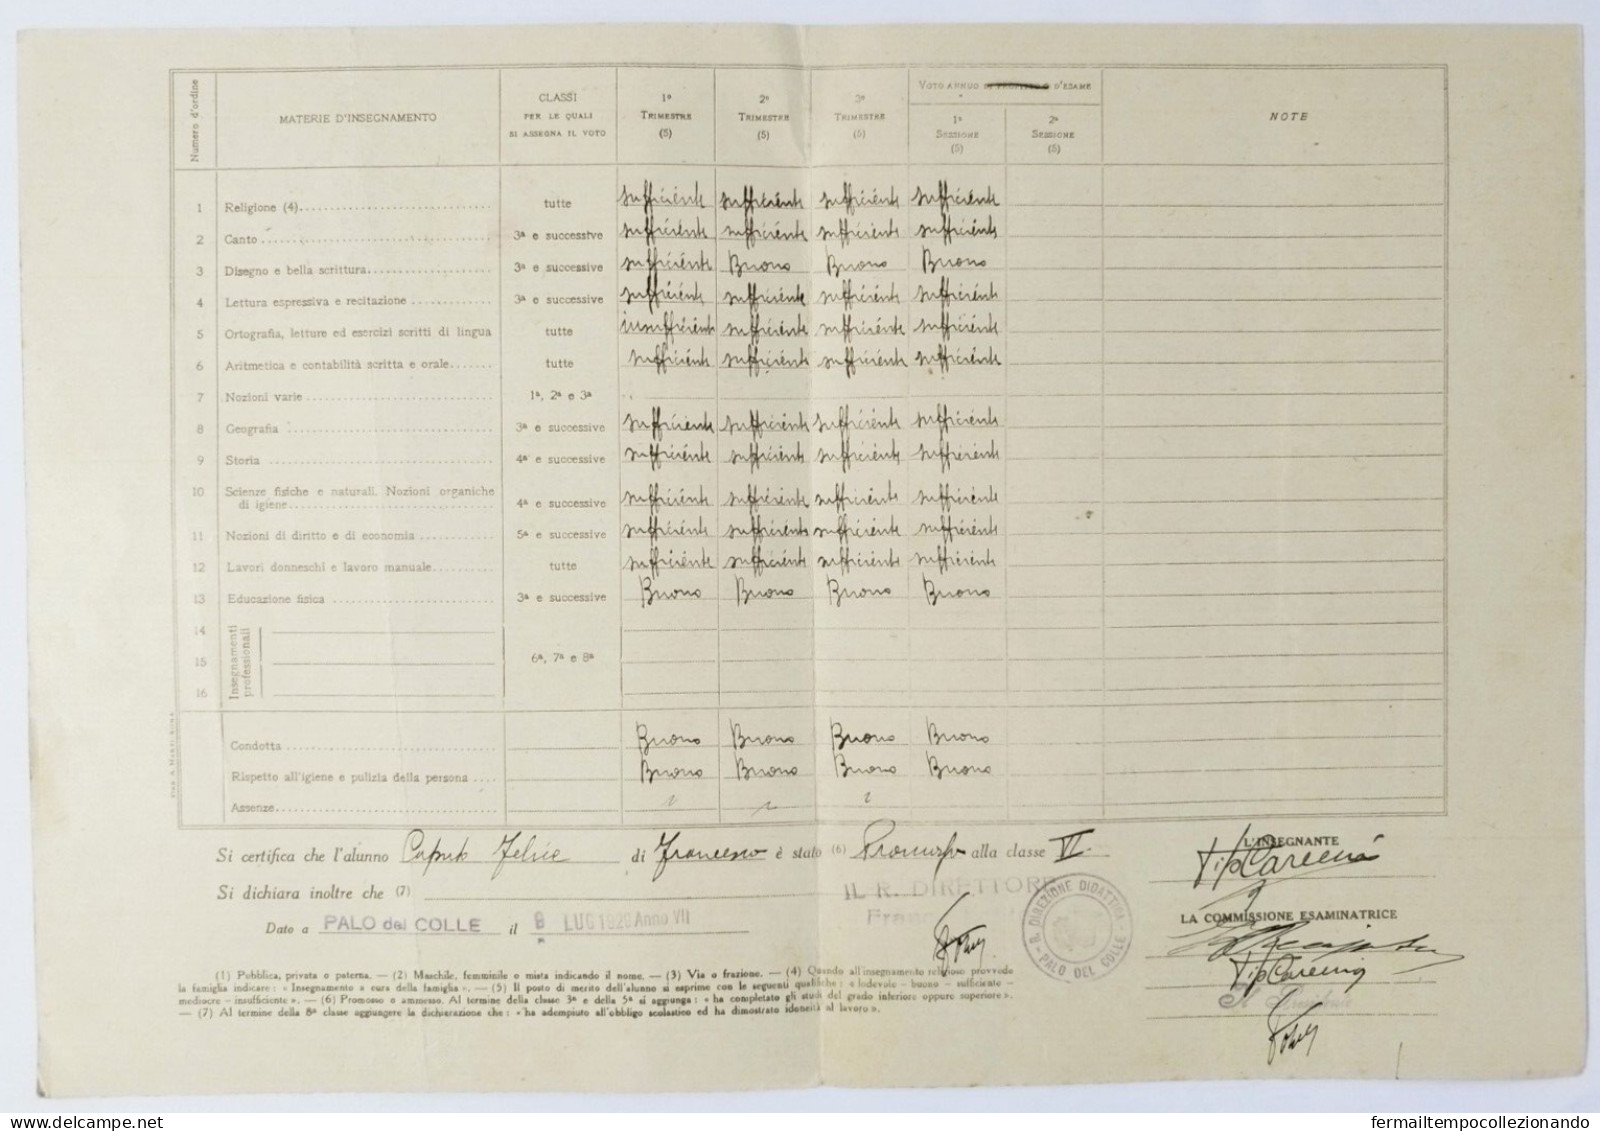 Numero d'ordine
MATERIE D'INSEGNAMENTO
CLASSI
PER LE QUALI
SI ASSEGNA IL VOTO
1º
TRIMESTRE
(5)
2º
TRIMESTRE
(5)
3º
TRIMESTRE
(5)
VOTO ANNUO D'ESAME
1ª
SESSIONE
(5)
2ª
SESSIONE
(5)
NOTE
1 Religione (4) tutte sufficiente sufficiente sufficiente sufficiente
2 Canto 3ª e successive sufficiente sufficiente sufficiente sufficiente
3 Disegno e bella scrittura 3ª e successive sufficiente Buono Buono Buono
4 Lettura espressiva e recitazione 3ª e successive sufficiente sufficiente sufficiente sufficiente
5 Ortografia, letture ed esercizi scritti di lingua tutte insufficiente sufficiente sufficiente sufficiente
6 Aritmetica e contabilità scritta e orale tutte sufficiente sufficiente sufficiente sufficiente
7 Nozioni varie 1ª, 2ª e 3ª
8 Geografia 3ª e successive sufficiente sufficiente sufficiente sufficiente
9 Storia 4ª e successive sufficiente sufficiente sufficiente sufficiente
10 Scienze fisiche e naturali. Nozioni organiche
di igiene 4ª e successive sufficiente sufficiente sufficiente sufficiente
11 Nozioni di diritto e di economia 5ª e successive sufficiente sufficiente sufficiente sufficiente
12 Lavori donneschi e lavoro manuale tutte sufficiente sufficiente sufficiente sufficiente
13 Educazione fisica 3ª e successive Buono Buono Buono Buono
14
15
16
Insegnamenti
professionali
6ª, 7ª e 8ª
Condotta Buono Buono Buono Buono
Rispetto all'igiene e pulizia della persona Buono Buono Buono Buono
Assenze
Si certifica che l'alunno Caputo Felice di Francesco è stato (6) Promosso alla classe VI.
Si dichiara inoltre che (7)
IL R. DIRETTORE
Dato a PALO del COLLE il 8 LUG 1929 Anno VII
R. DIREZIONE DIDATTICA
PALO DEL COLLE
L'INSEGNANTE
LA COMMISSIONE ESAMINATRICE
(1) Pubblica, privata o paterna. — (2) Maschile, femminile o mista indicando il nome. — (3) Via o frazione. — (4) Quando all'insegnamento religioso provvede
la famiglia indicare: « Insegnamento a cura della famiglia ». — (5) Il posto di merito dell'alunno si esprime con le seguenti qualifiche: « lodevole - buono - sufficiente -
mediocre - insufficiente ». — (6) Promosso o ammesso. Al termine della classe 3ª e della 5ª si aggiunga: « ha completato gli studi del grado inferiore oppure superiore ».
— (7) Al termine della 8ª classe aggiungere la dichiarazione che: « ha adempiuto all'obbligo scolastico ed ha dimostrato idoneità al lavoro ».
delcampe.net
fermailtempocollezionando